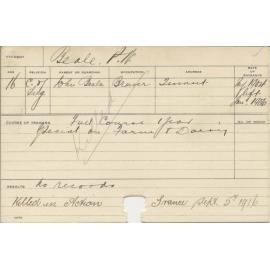 Beale, P.W
AGE RELIGION PARENT OR GUARDIAN OCCUPATION ADDRESS DATE OF ENTRANCE
16 C. of Eng. John Beale
Left
Jan 1906
COURSE OF TRAINING Full Course 1 year
on Farm & Dairy
RESULTS no records
Killed in Action France Sept. 5th 1916